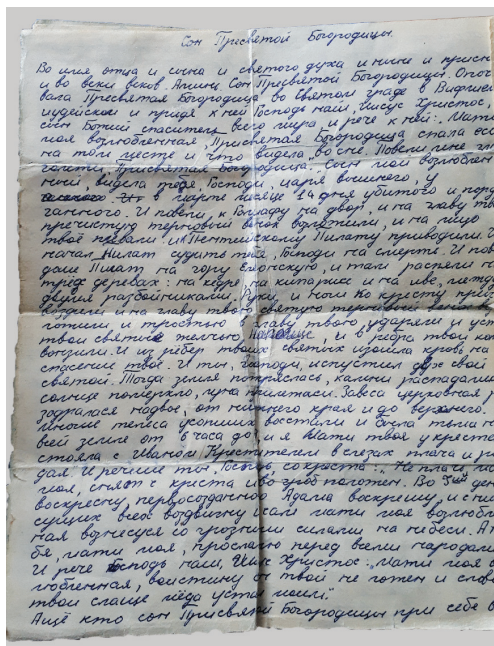 Сон Пресвятой Богородицы.
Во имя отца и сына и святого духа и ныне и присно
и во веки веков. Аминь. Сон Пресвятой Богородицы. Опочи
вала Пресвятая Богородица во святом граде в Вифлие
иудейском и придя к ней Господь наш Иисус Христос,
сын Божий спаситель всего мира и рече к ней: Мати
моя возлюбленная, Пресвятая Богородица спала еси
на том месте и что видела во сне. Повели мне
Пресвятая Богородица: Сын мой возлюблен
ный, видела тебя, Господи, царя вышнего, у
в марте месяце 14 дня убитого и пору
ганного. И павели к Пилату на двор, и на главу тво
пречистую терновый венок возложили, и на лицо
твоё плевали. и к Понтийскому Пилату приводили. И
начал Пилат судить тебя, Господи на смерть. И пов
Пилат на гору Сионскую, и там распели
трёх деревах: на кедре на кипарисе и на иве, межд
двумя разбойниками. Руки и ноги ко кресту при
воздили и на главу твою святую терновый
и тростью главу твою, ударяли и уст
твои святые желчью и в рёбра твои коп
вонзили. И из рёбер твоих святых изошла кровь на
спасение твоё. И ты, Господи, испустил дух свой
святой. Тогда земля потряслась, камни распадали
солнце померкло, луна Завеса церковная р
задралася надвое, от нижнего края и до верхнего.
многие телеса усопших восстали и была тьма н
всей земле от часа до и я Мати твоя у креста
стояла с Иваном Крестителем в слезах плача и
дая. И речише ты, Господь, со креста: Не плачь ма
моя, снят с креста и во гроб положен. Во 3ий ден
воскресну, первозданного Адама воскрешу, и с ни
сущих всех воздвигну сам мати моя возлюбле
ная вознесуся со грозными силами на небеси. А
бя, мати моя, прославлю перед всеми народами
И рече Господь наш, Иисус Христос: Мати моя
любленная, воистину сон твой не ложен и слова
твои слаще мёда устам моим.
Аще кто сон Пресвятой Богородицы при себе